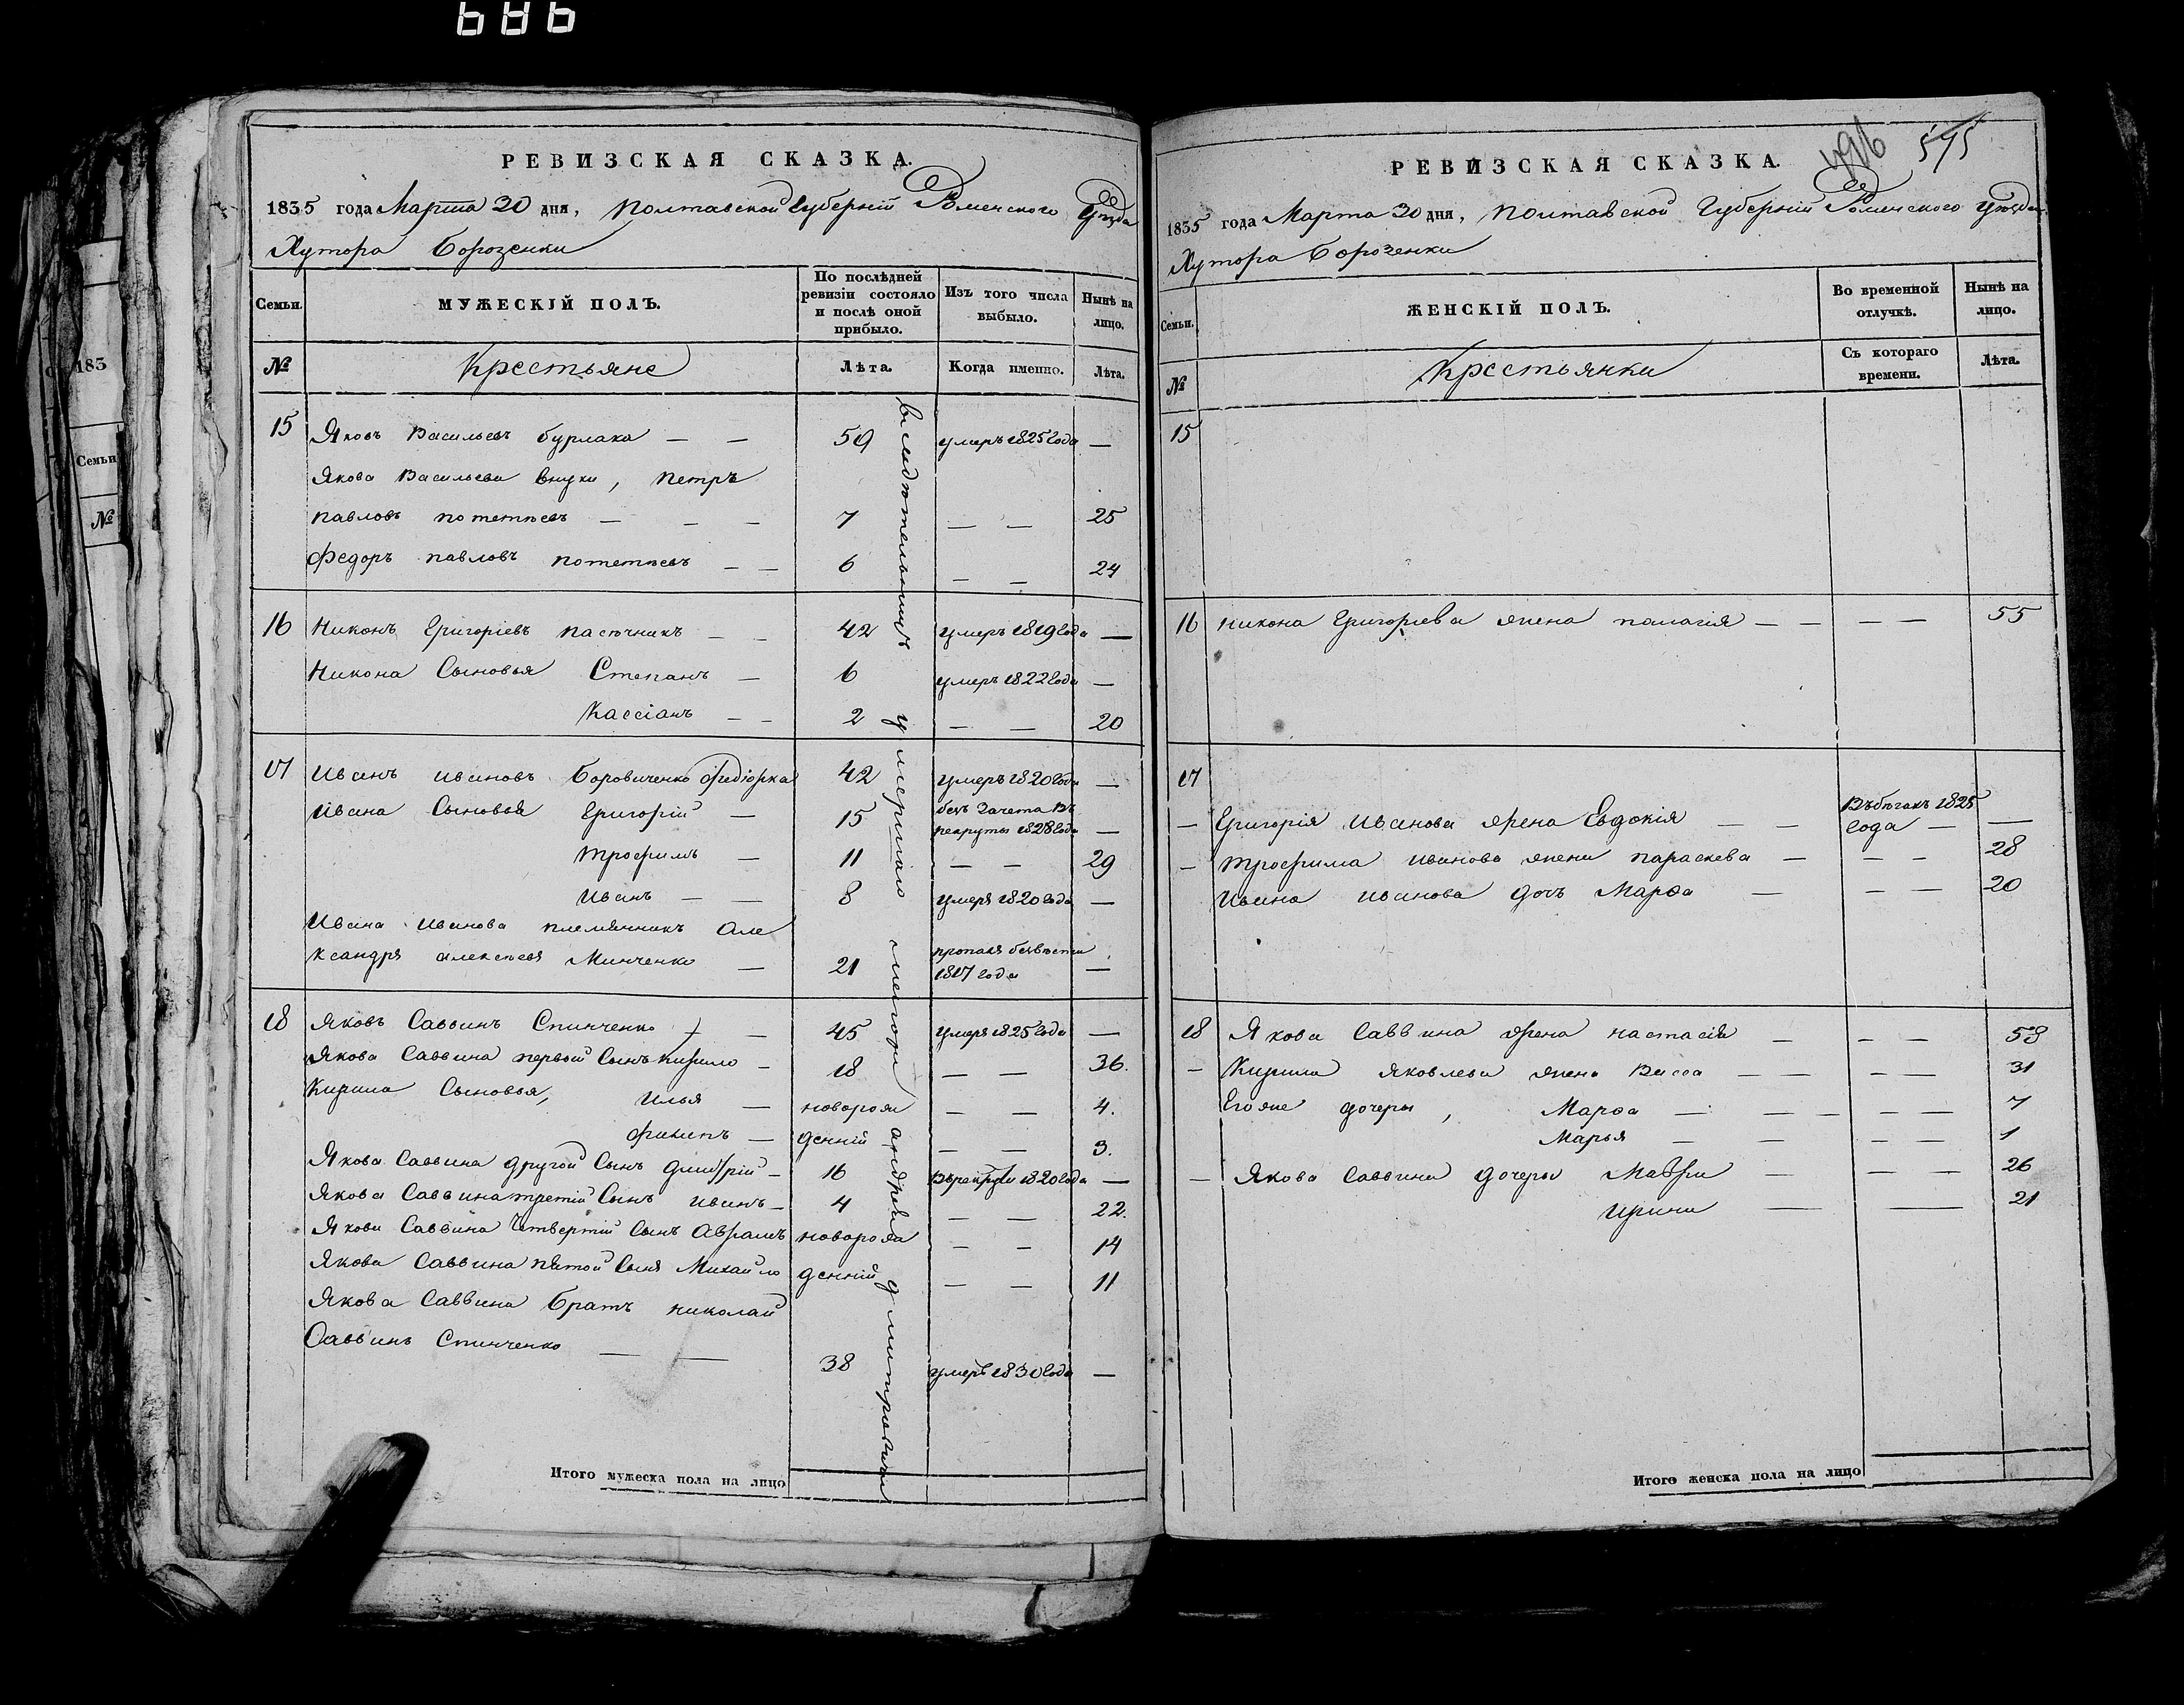 686
РЕВИЗСКАЯ СКАЗКА.
1835 года Марта 20 дня, Полтавской Губерніи Роменского Уѣзда
Хутора Борозенки
Семьи.
МУЖЕСКІЙ ПОЛЪ.
По послѣдней ревизіи состояло и послѣ оной прибыло.
Изъ того числа выбыло.
Нынѣ на лицо.
№
Крестьяне
Лѣта.
Когда именно.
Лѣта.
15 Яковъ Васильевъ бурлака — — 59 умеръ 1825 года —
Якова Васильева внуки, Петръ
павловъ потетѣевъ — — — 7 — — 25
Федоръ павловъ потетѣевъ — — 6 — — 24
16 Никонъ Григоріевъ пасѣчникъ — — 42 умеръ 1819 года —
Никона Сыновья Степанъ — 6 умеръ 1822 года —
Кассіанъ — — 2 — — 20
17 Иванъ ивановъ Боровиченко 42 умеръ 1820 года —
Ивана Сыновья Григорій — 15 безъ Зачета въ рекруты 1828 года —
Трофимъ — 11 — — 29
Иванъ — — 8 умеръ 1820 года —
Ивана Иванова племянникъ Але
ксандръ алексѣевъ Минченко — 21 пропалъ безвѣсти 1817 года —
18 Яковъ Саввинъ Спинченко — 45 умеръ 1825 года —
Якова Саввина первой Сынъ Кирило — 18 — — 36.
Кирила Сыновья, Илья — новорож — — 4.
филипъ — денній — — 3.
Якова Саввина другой Сынъ Дмитрій — 16 Въ рекруты 1820 года —
Якова Саввина третій Сынъ иванъ — 4 — — 22.
Якова Саввина Четвертій Сынъ Аврамъ новорож — — 14
Якова Саввина пятой Сынъ Михайло денній — — 11
Якова Саввина братъ николай
Саввинъ Спинченко — — 38 умеръ 1830 года —
умершаго андрея дмитровича
Итого мужеска пола на лицо
496 545
РЕВИЗСКАЯ СКАЗКА.
1835 года Марта 20 дня, Полтавской Губерніи Роменского Уѣзда
Хутора Борозенки
Семьи.
ЖЕНСКІЙ ПОЛЪ.
Во временной отлучкѣ.
Нынѣ на лицо.
№
Крестьянки
Съ котораго времени.
Лѣта.
15
16 Никона Григорьева жена палагія — — — — 55
17
— Григорія Иванова жена Евдокія — — Въ бѣгахъ 1825 года — —
— Трофима Иванова жена параскева — — — 28
Ивана Иванова дочь Марѳа — — — 20
18 Якова Саввина жена настасія — — — 53
— Кирила Яковлева жена Васса — — — — 31
Его же дочеры, Марѳа — — — — — 7
Марья — — — — 1
— Якова Саввина дочеры Мавра — — — 26
Ирина — — 21
Итого женска пола на лицо
183
Семьи
№